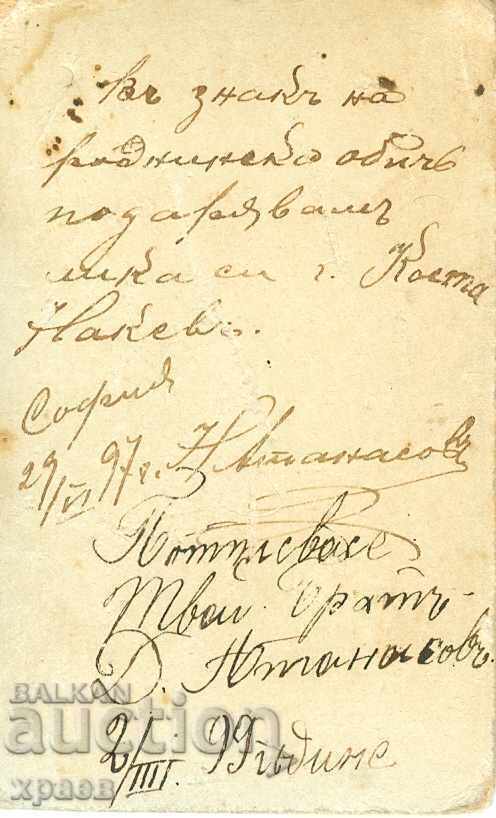 въ знакъ на
роднинска обичь
подарявамъ
лика си г. Коста
Накевъ.
София
29/VI 97 г. Н Атанасовъ
Потписвасе
Твой Братъ
Д. Атанасовъ.
2/III. 99 године
BALKAN
auction
храев